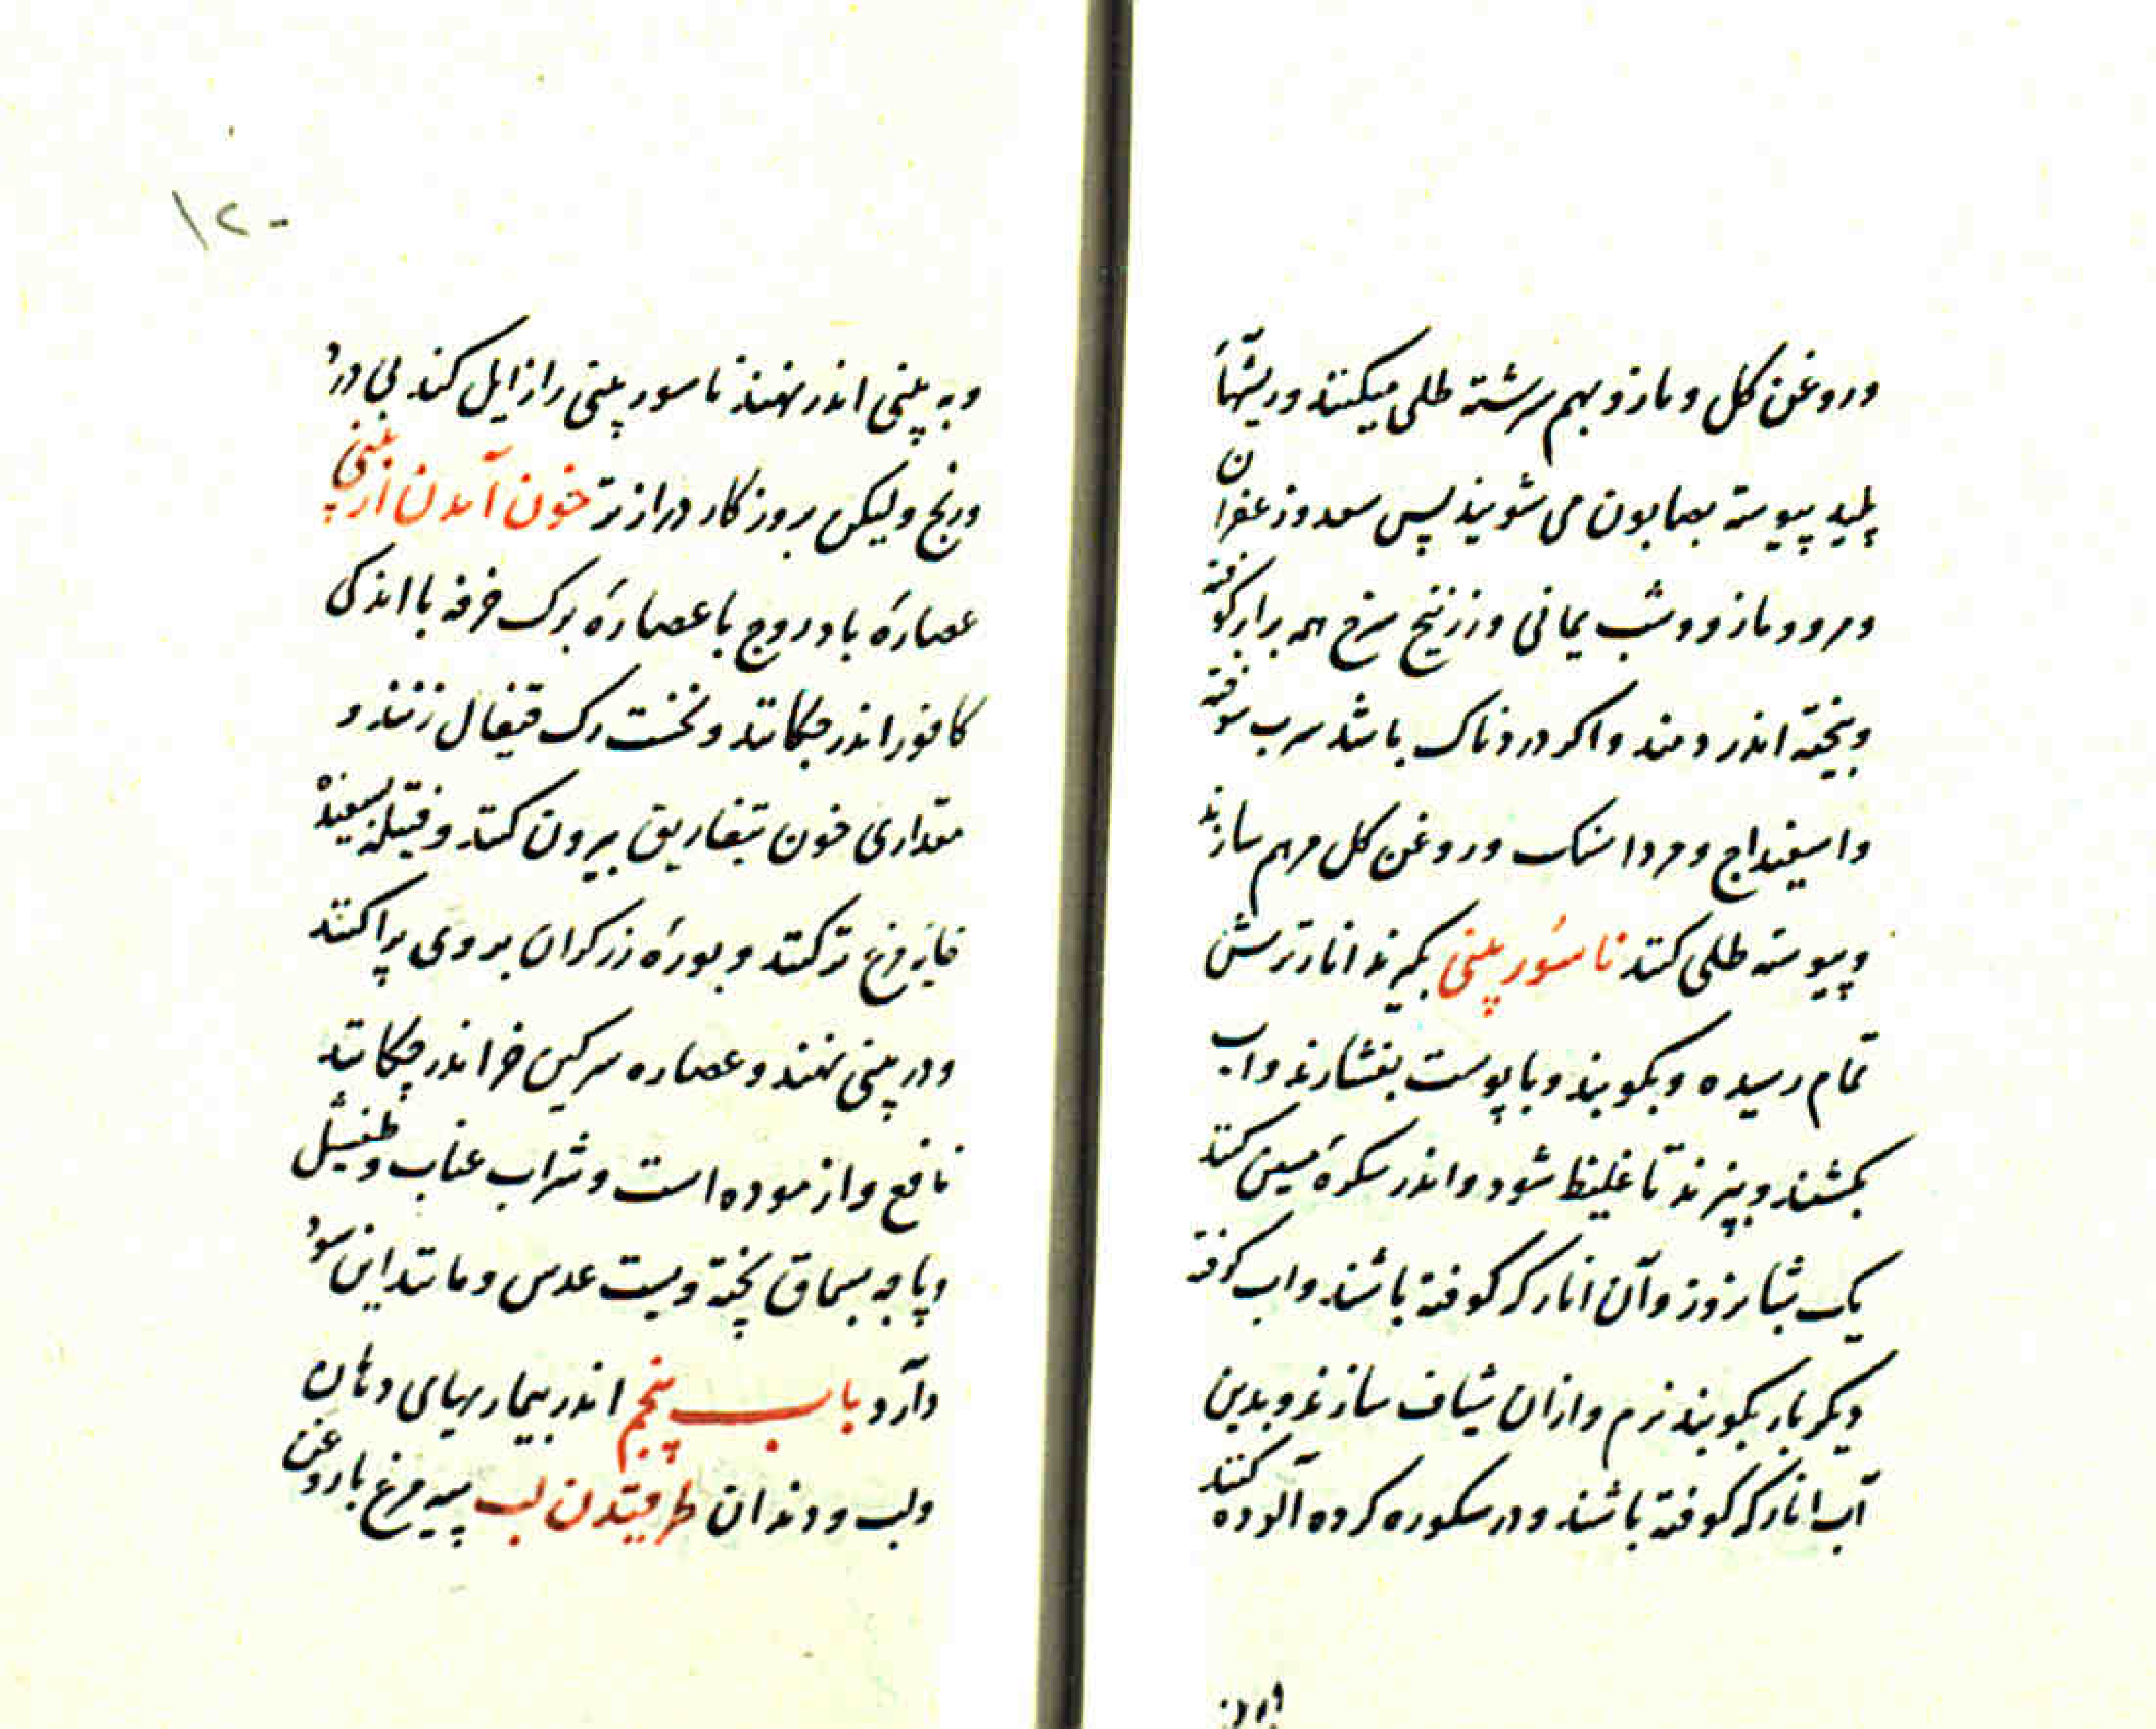 وروغن کل و مازو بهم سرشته طلی میکنند و ریشهاَ
پلید پیوسته بصابون می شویند پس سعد و زعفران
و مرو و مازو و شب یمانی و زرنیخ سرخ همه برابر کوفته
و بیخته اندر دمند و اکر دردناک باشد سرب سوخته
و اسفیداج و مرداسنک و روغن کل مرهم سازند
و پیوسته طلی کنند ناسُور بینی بکیرند انار ترش
تمام رسیده و بکوبند و با پوست بفشارند و اب
بکشند و بپزند تا غلیظ شود و اندر سکرهٔ مسین کنند
یک شبانروز و آن انار که کوفته باشند و اب کرفته
دیکر بار بکوبند نرم و ازان شیاف سازند و بدین
آب انار که کوفته باشند و در سکوره کرده آلوده کنند
و به بینی
۱۲۰
و به بینی اندر نهند ناسور بینی را زایل کند بی درد
و رنج ولیکن بروزکار درازتر خون آمدن از بینی
عصارهٔ بادروج با عصارهٔ برک خرفه با اندکی
کافور اندر چکانند و نخست رک قیفال زنند و
مقداری خون بتفاریق بیرون کنند و فتیله بسفیده
خایه مرغ تر کنند و بورهٔ زرکران بر وی پراکنند
و در بینی نهند و عصاره سرکین خر اندر چکانند
نافع و ازموده است و شراب عناب و طفشیل
و پاچه بسماق پخته و پست عدس و مانند این سود
دارد باب پنجم اندر بیماریهای دهان
و لب و دندان طرقیدن لب پیه مرغ با روغن